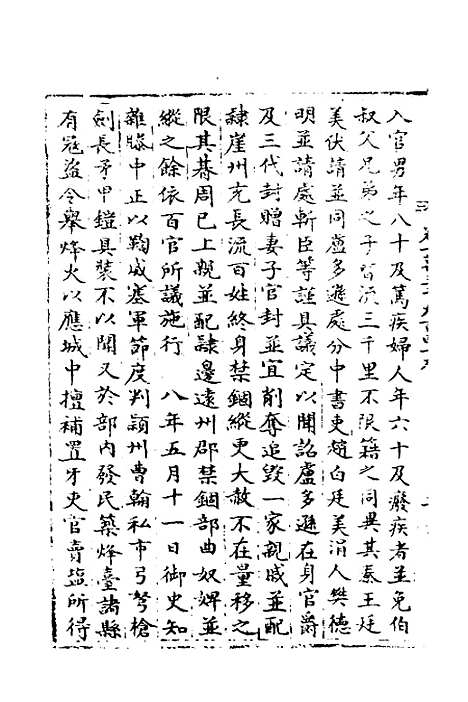 入官男年八十及篤疾婦人年六十及癈疾者並免伯
叔父兄弟之子皆流三千里不限籍之同異其秦王廷
美伏請並同盧多遜處分中書吏趙白廷美涓人樊德
明並請處斬臣等謹具議定以聞詔盧多遜在身官爵
及三代封贈妻子官封並宜削奪追毀一家親戚並配
隸崖州充長流百姓終身禁錮縱更大赦不在量移之
限其朞周已上親並配隸邊遠州郡禁錮部曲奴婢並
縱之餘依百官所議施行　八年五月十一日御史知
雜滕中正以鞫威塞軍節度判潁州曹翰私市弓弩槍
劍長矛甲鎧具裝不以聞又於部內發民築烽臺諸縣
有冦盜令舉烽火以應城中擅補置牙吏官賣塩所得